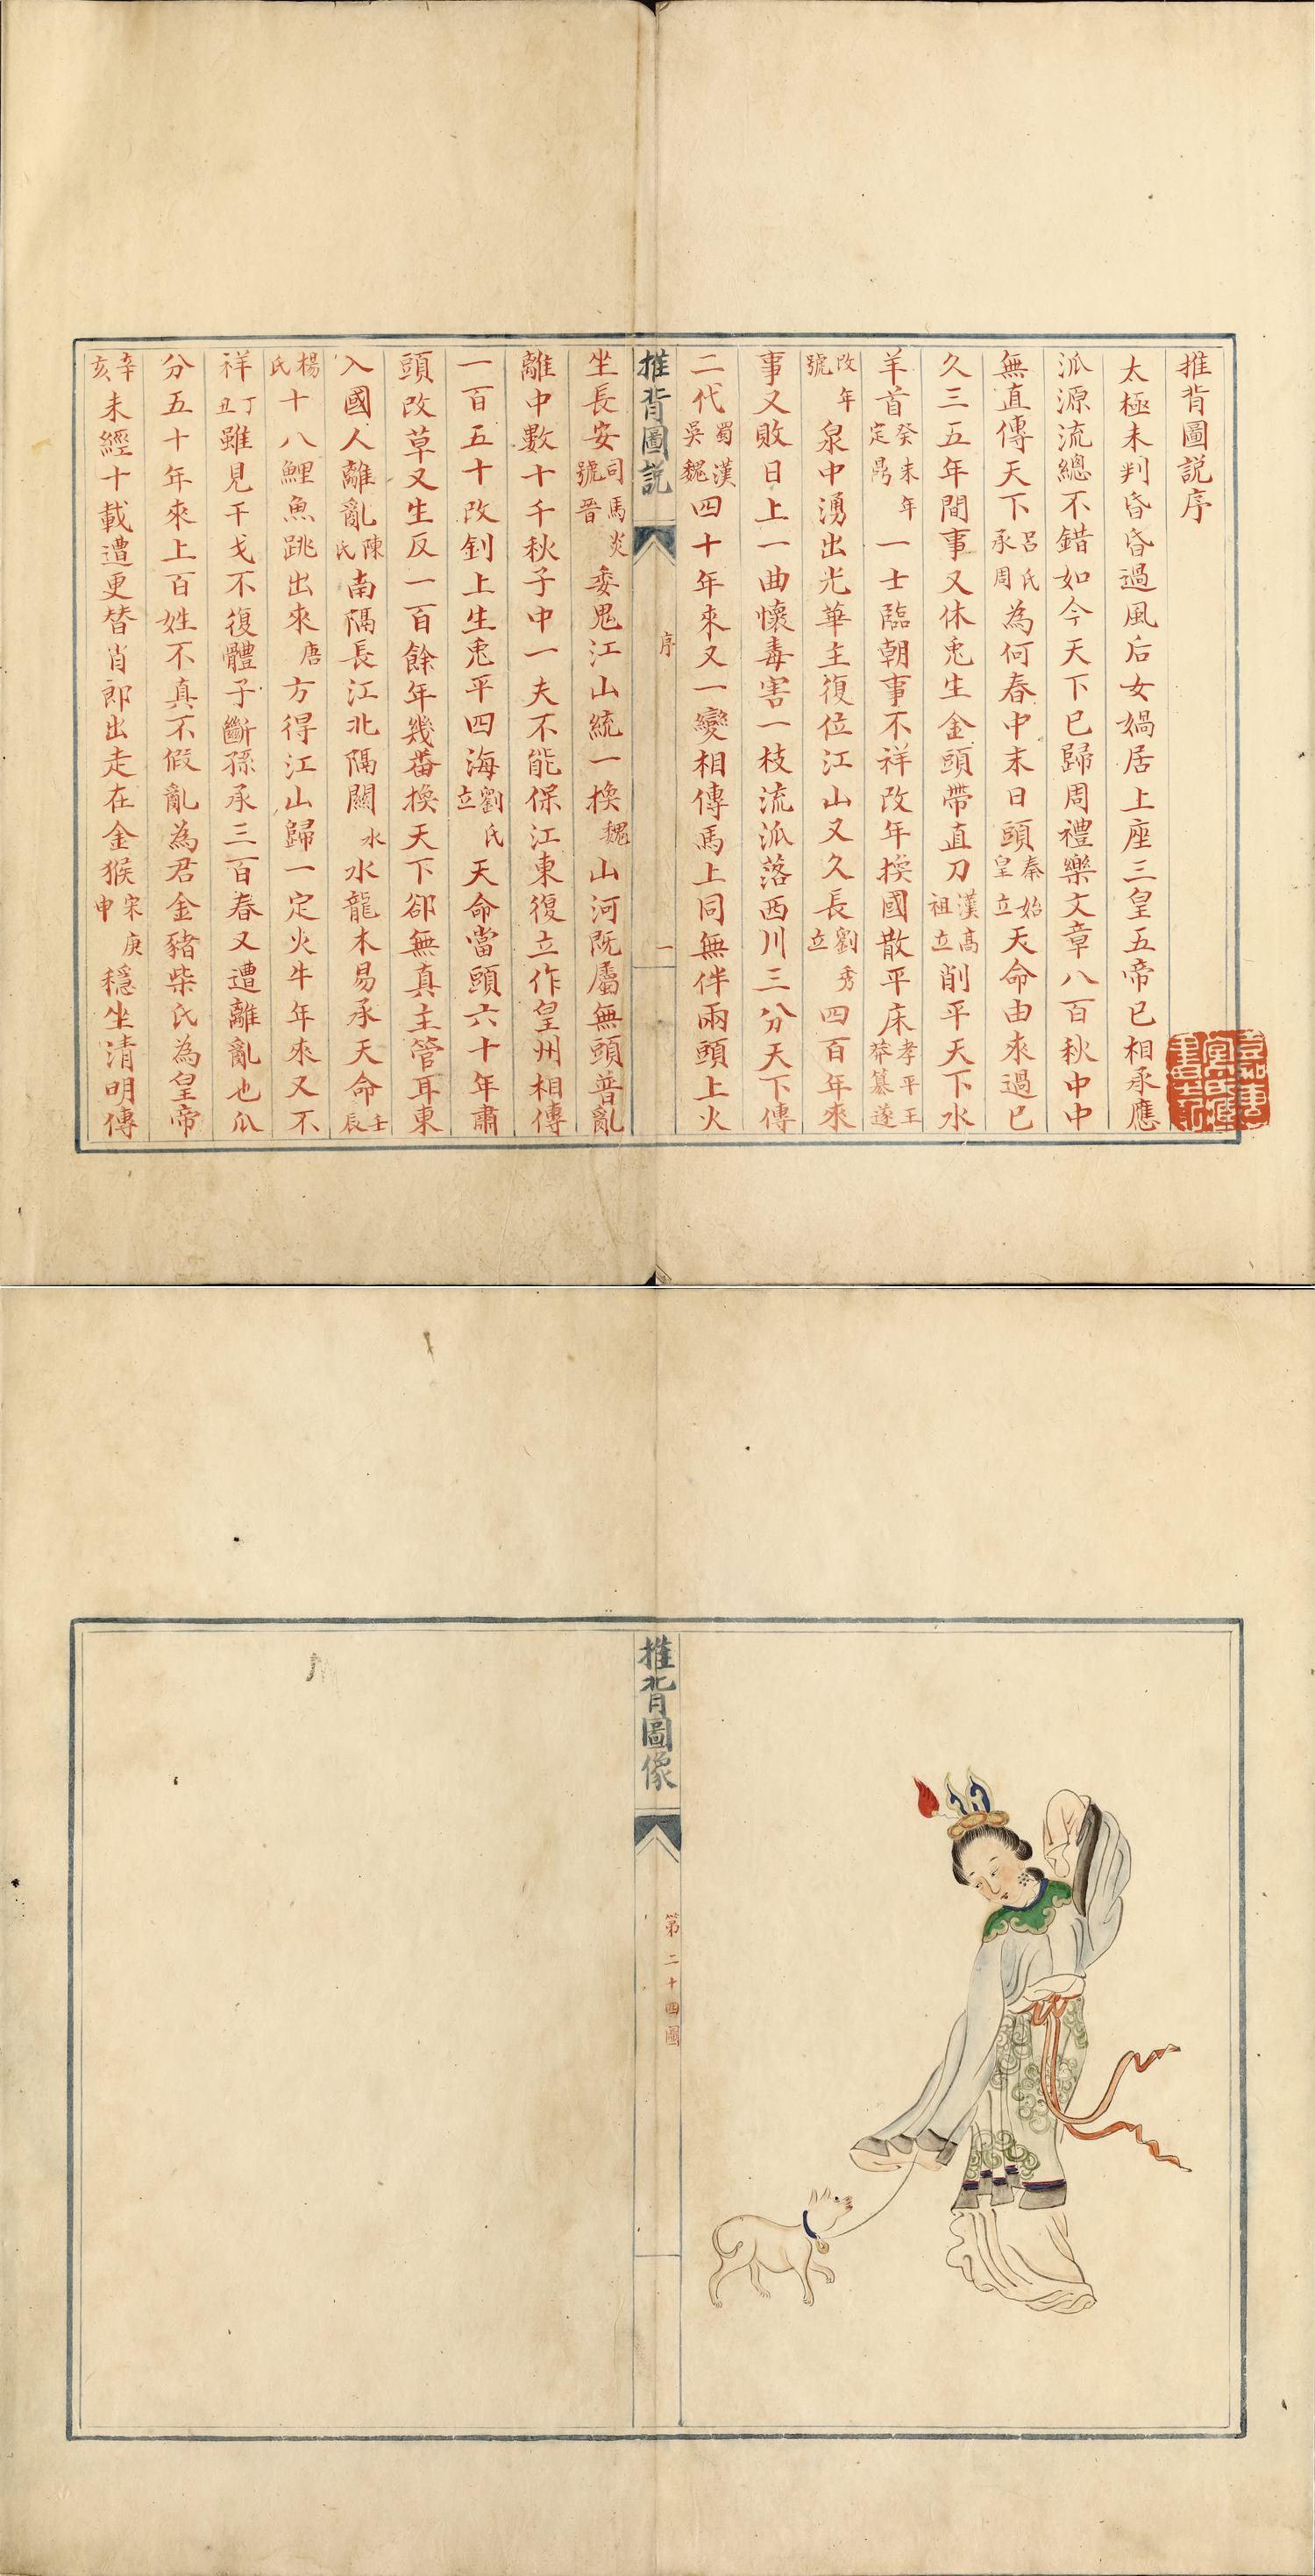 推背圖説序
太極未判昏昏過風后女媧居上座三皇五帝已相承應
泒源流總不錯如今天下已歸周禮樂文章八百秋中中
無直傳天下呂氏承周為何春中末日頭秦始皇立天命由來過已
久三五年間事又休兎生金頭帶直刀漢高祖立削平天下水
羊首癸未年定鼎一士臨朝事不祥改年換國散平床孝平王莽纂遂
改年號泉中湧出光華主復位江山又久長劉秀立四百年來
事又敗日上一曲懷毒害一枝流泒落西川三分天下傳
二代蜀漢吳魏四十年來又一變相傳馬上同無伴兩頭上火
推背圖説
序
一
坐長安司馬炎號晉委鬼江山統一換魏山河既屬無頭普亂
離中數十千秋子中一夫不能保江東復立作皇州相傳
一百五十改釗上生兎平四海劉氏立天命當頭六十年肅
頭改草又生反一百餘年幾番換天下郤無真主管耳東
入國人離亂陳氏南隔長江北隔關水水龍木易承天命壬辰
楊氏十八鯉魚跳出來唐方得江山歸一定火牛年來又不
祥丁丑雖見干戈不復體子斷孫承三百春又遭離亂也瓜
分五十年來上百姓不真不假亂為君金豬柴氏為皇帝
辛亥未經十載遭更替肖郎出走在金猴宋庚申穩坐清明傳
推背圖像
第二十四圖